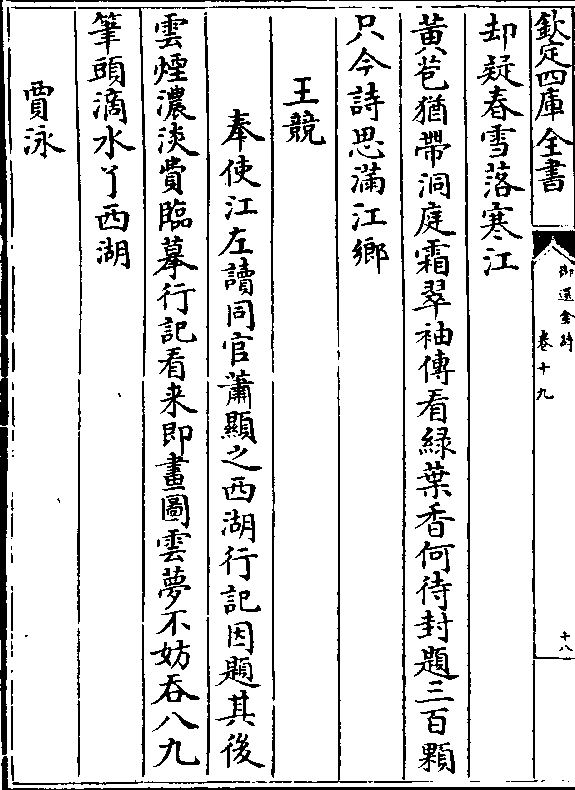 欽定四庫全書
御選金詩
卷十九
十八
却疑春雪落寒江
黄苞猶帶洞庭霜翠袖傳看緑葉香何待封題三百顆
只今詩思滿江鄉
王競
奉使江左讀同官蕭顯之西湖行記因題其後
雲煙濃淡費臨摹行記看来即畫圖雲夢不妨吞八九
筆頭滴水了西湖
賈泳